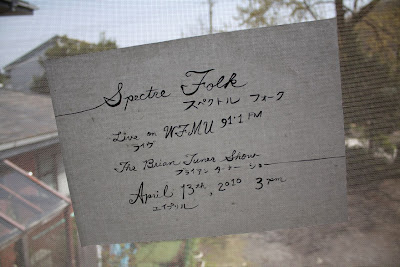 Spectre Folk
スペクトル フォーク
Live on WFMU 91.1 FM
ライヴ
The Brian Turner Show
ブライアン ターナー ショー
April 13th, 2010 3pm
エイプリル